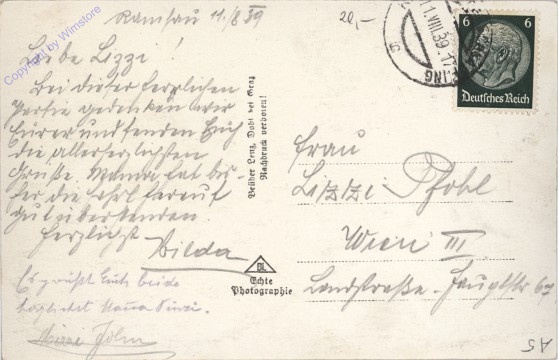 Ramsau 11./8 39
20,-
Liebe Lizzi!
Bei dieser herrlichen
Partie gedenken wir
Eurer und senden Euch
die allerherzlichsten
Grüße. Mama hat bis-
her die Fahrt herauf
gut überstanden.
Herzlichst
Hilda
Es grüßt Euch beide
Copyright by Wimstore
Brüder Lenz, Dobl bei Graz
Nachdruck verboten!
BL
Echte
Photographie
VIII.39.17
6 6
Deutsches Reich
Frau
Lizzi Pfohl
Wien III
Landstraße-Hauptstr 67
A5